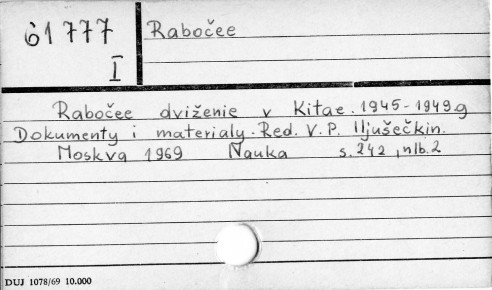 61777
I
Rabočee
Rabočee dviženie v Kitae. 1945-1949.g
Dokumenty i materialy. Red. V. P. Iljušečkin.
Moskva 1969 Nauka s. 242, nlb. 2
DUJ 1078/69 10.000